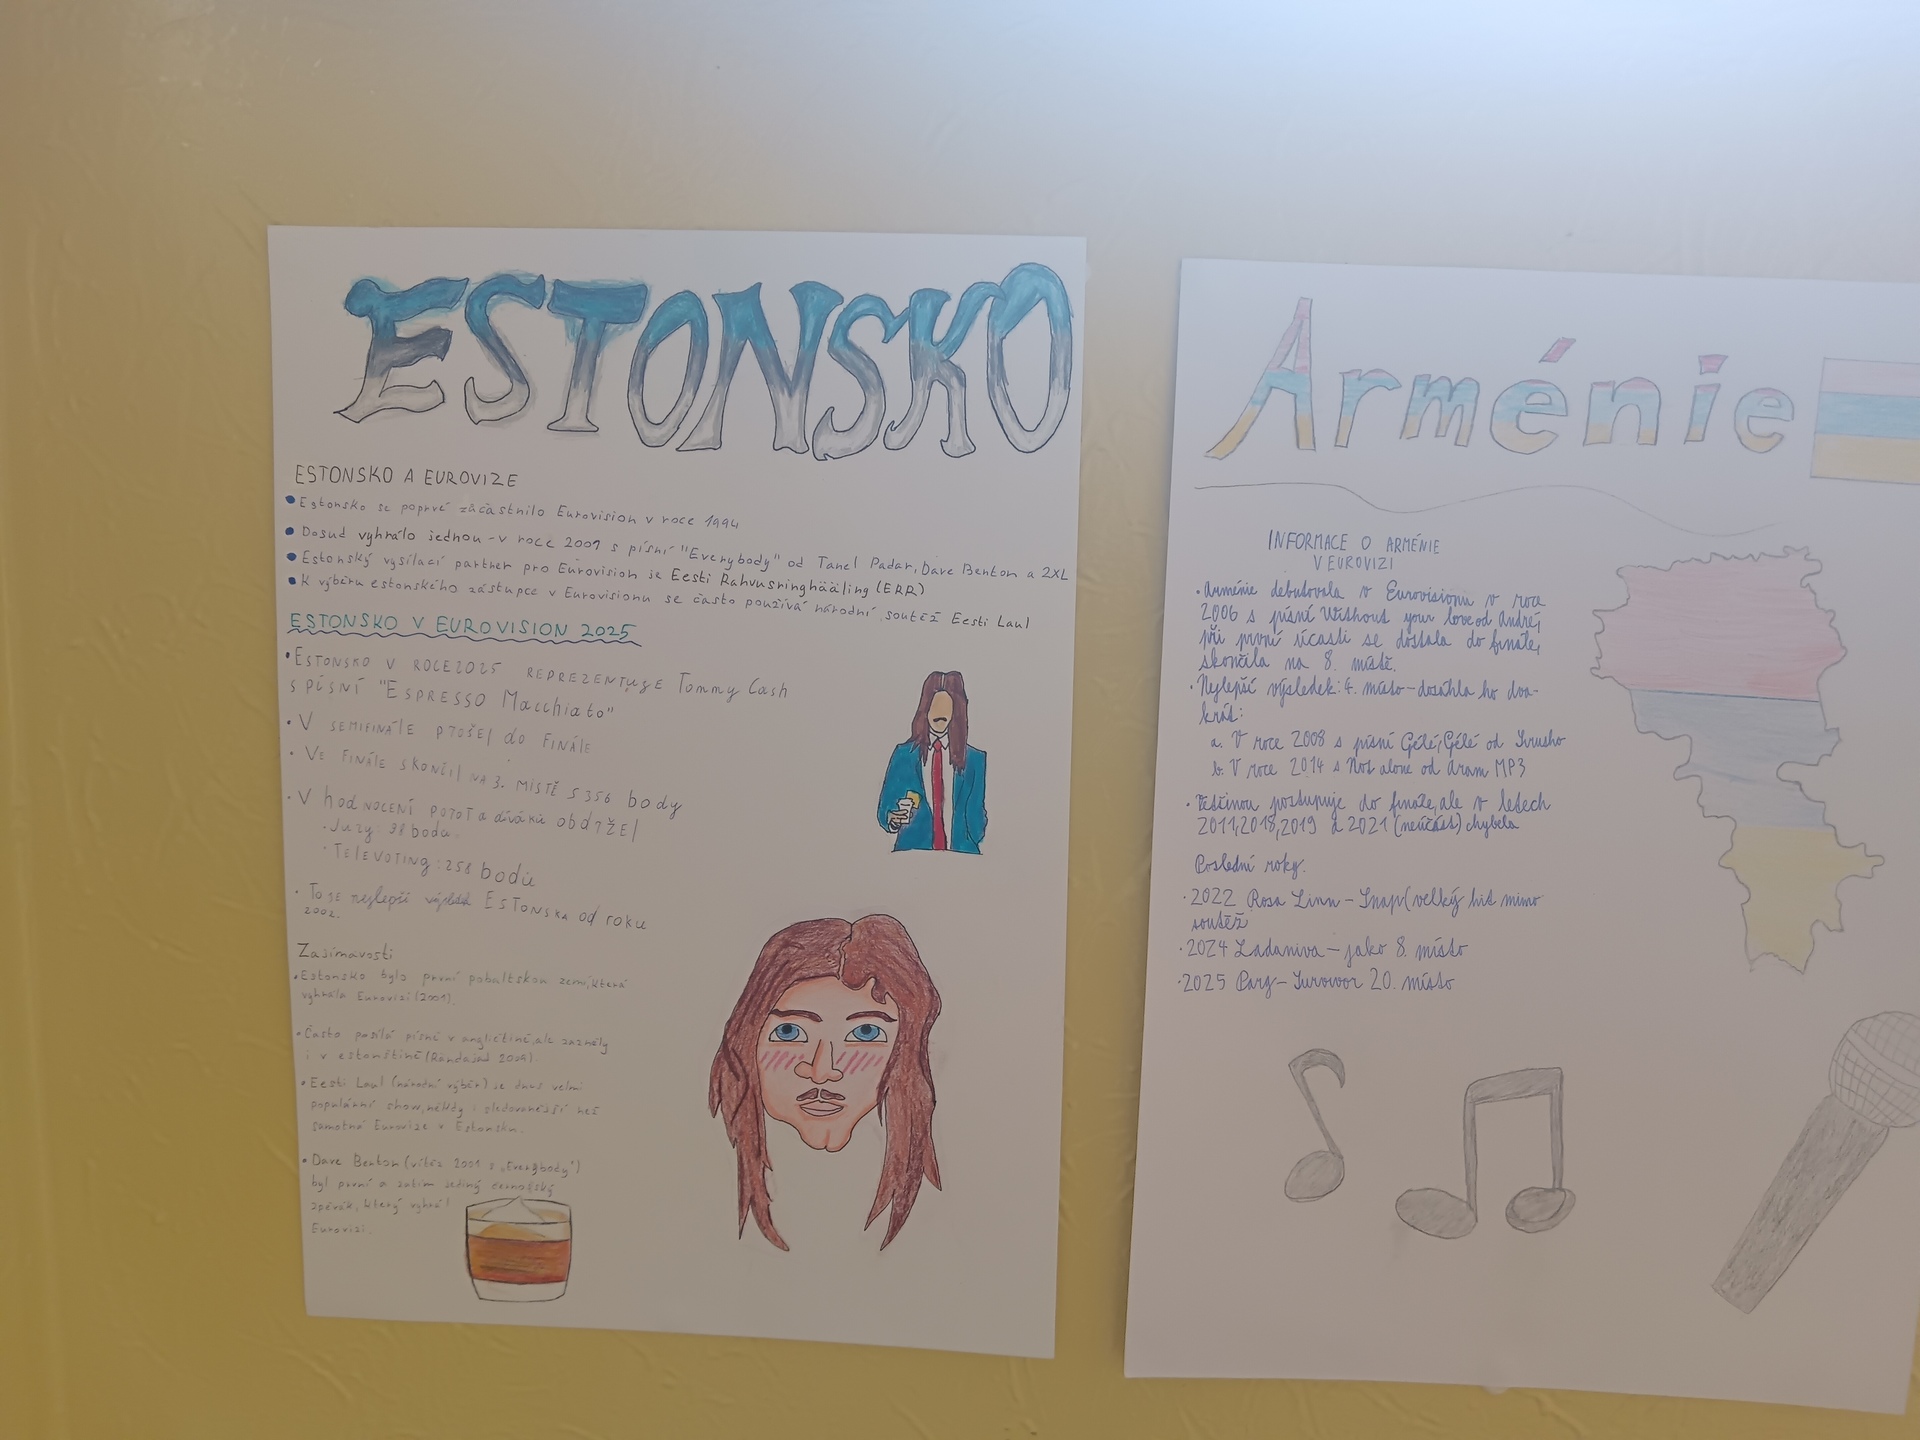 ESTONSKO
ESTONSKO A EUROVIZE
Estonsko se poprvé zúčastnilo Eurovision v roce 1994
Dosud vyhrálo jednou - v roce 2001 s písní "Everybody" od Tanel Padar, Dave Benton a 2XL
Estonský vysílací partner pro Eurovision je Eesti Rahvusringhääling (ERR)
K výběru estonského zástupce v Eurovisionu se často používá národní soutěž Eesti Laul
ESTONSKO V EUROVISION 2025
• ESTONSKO V ROCE 2025 REPREZENTUJE Tommy Cash
S PÍSNÍ "ESPRESSO Macchiato"
• V SEMIFINÁLE PROŠEL do FINÁLE
• VE FINÁLE SKONČIL NA 3. MÍSTĚ S 356 body
• V hodNOCENÍ POROT a diváků obdRŽEL
• Jury: 98 bodů
• TELEVOTING: 258 bodů
• To JE nejlepší výsledek ESTONSKA od roku
2002.
Zajímavosti
• Estonsko bylo první pobaltskou zemí, která
vyhrála Eurovizi (2001).
• Často posílá písně v angličtině, ale zazněly
i v estonštině (Rändajad 2009).
• Eesti Laul (národní výběr) je dnes velmi
populární show, někdy i sledovanější než
samotná Eurovize v Estonsku.
• Dave Benton (vítěz 2001 s „Everybody")
byl první a zatím jediný černošský
zpěvák, který vyhrál
Eurovizi.
Arménie
INFORMACE O ARMÉNIE
V EUROVIZI
• Arménie debutovala v Eurovisionu v roce
2006 s písní Without your love od André,
při první účasti se dostala do finále,
skončila na 8. místě.
• Nejlepší výsledek: 4. místo - dosáhla ho dva-
krát:
a. V roce 2008 s písní Qélé, Qélé od Sirusho
b. V roce 2014 s Not alone od Aram MP3
• Většinou postupuje do finále, ale v letech
2011, 2018, 2019 a 2021 (neúčast) chybela
Poslední roky.
• 2022 Rosa Linn - Snap (velký hit mimo
soutěž
• 2024 Ladaniva - jako 8. místo
• 2025 Parg - Survivor 20. místo